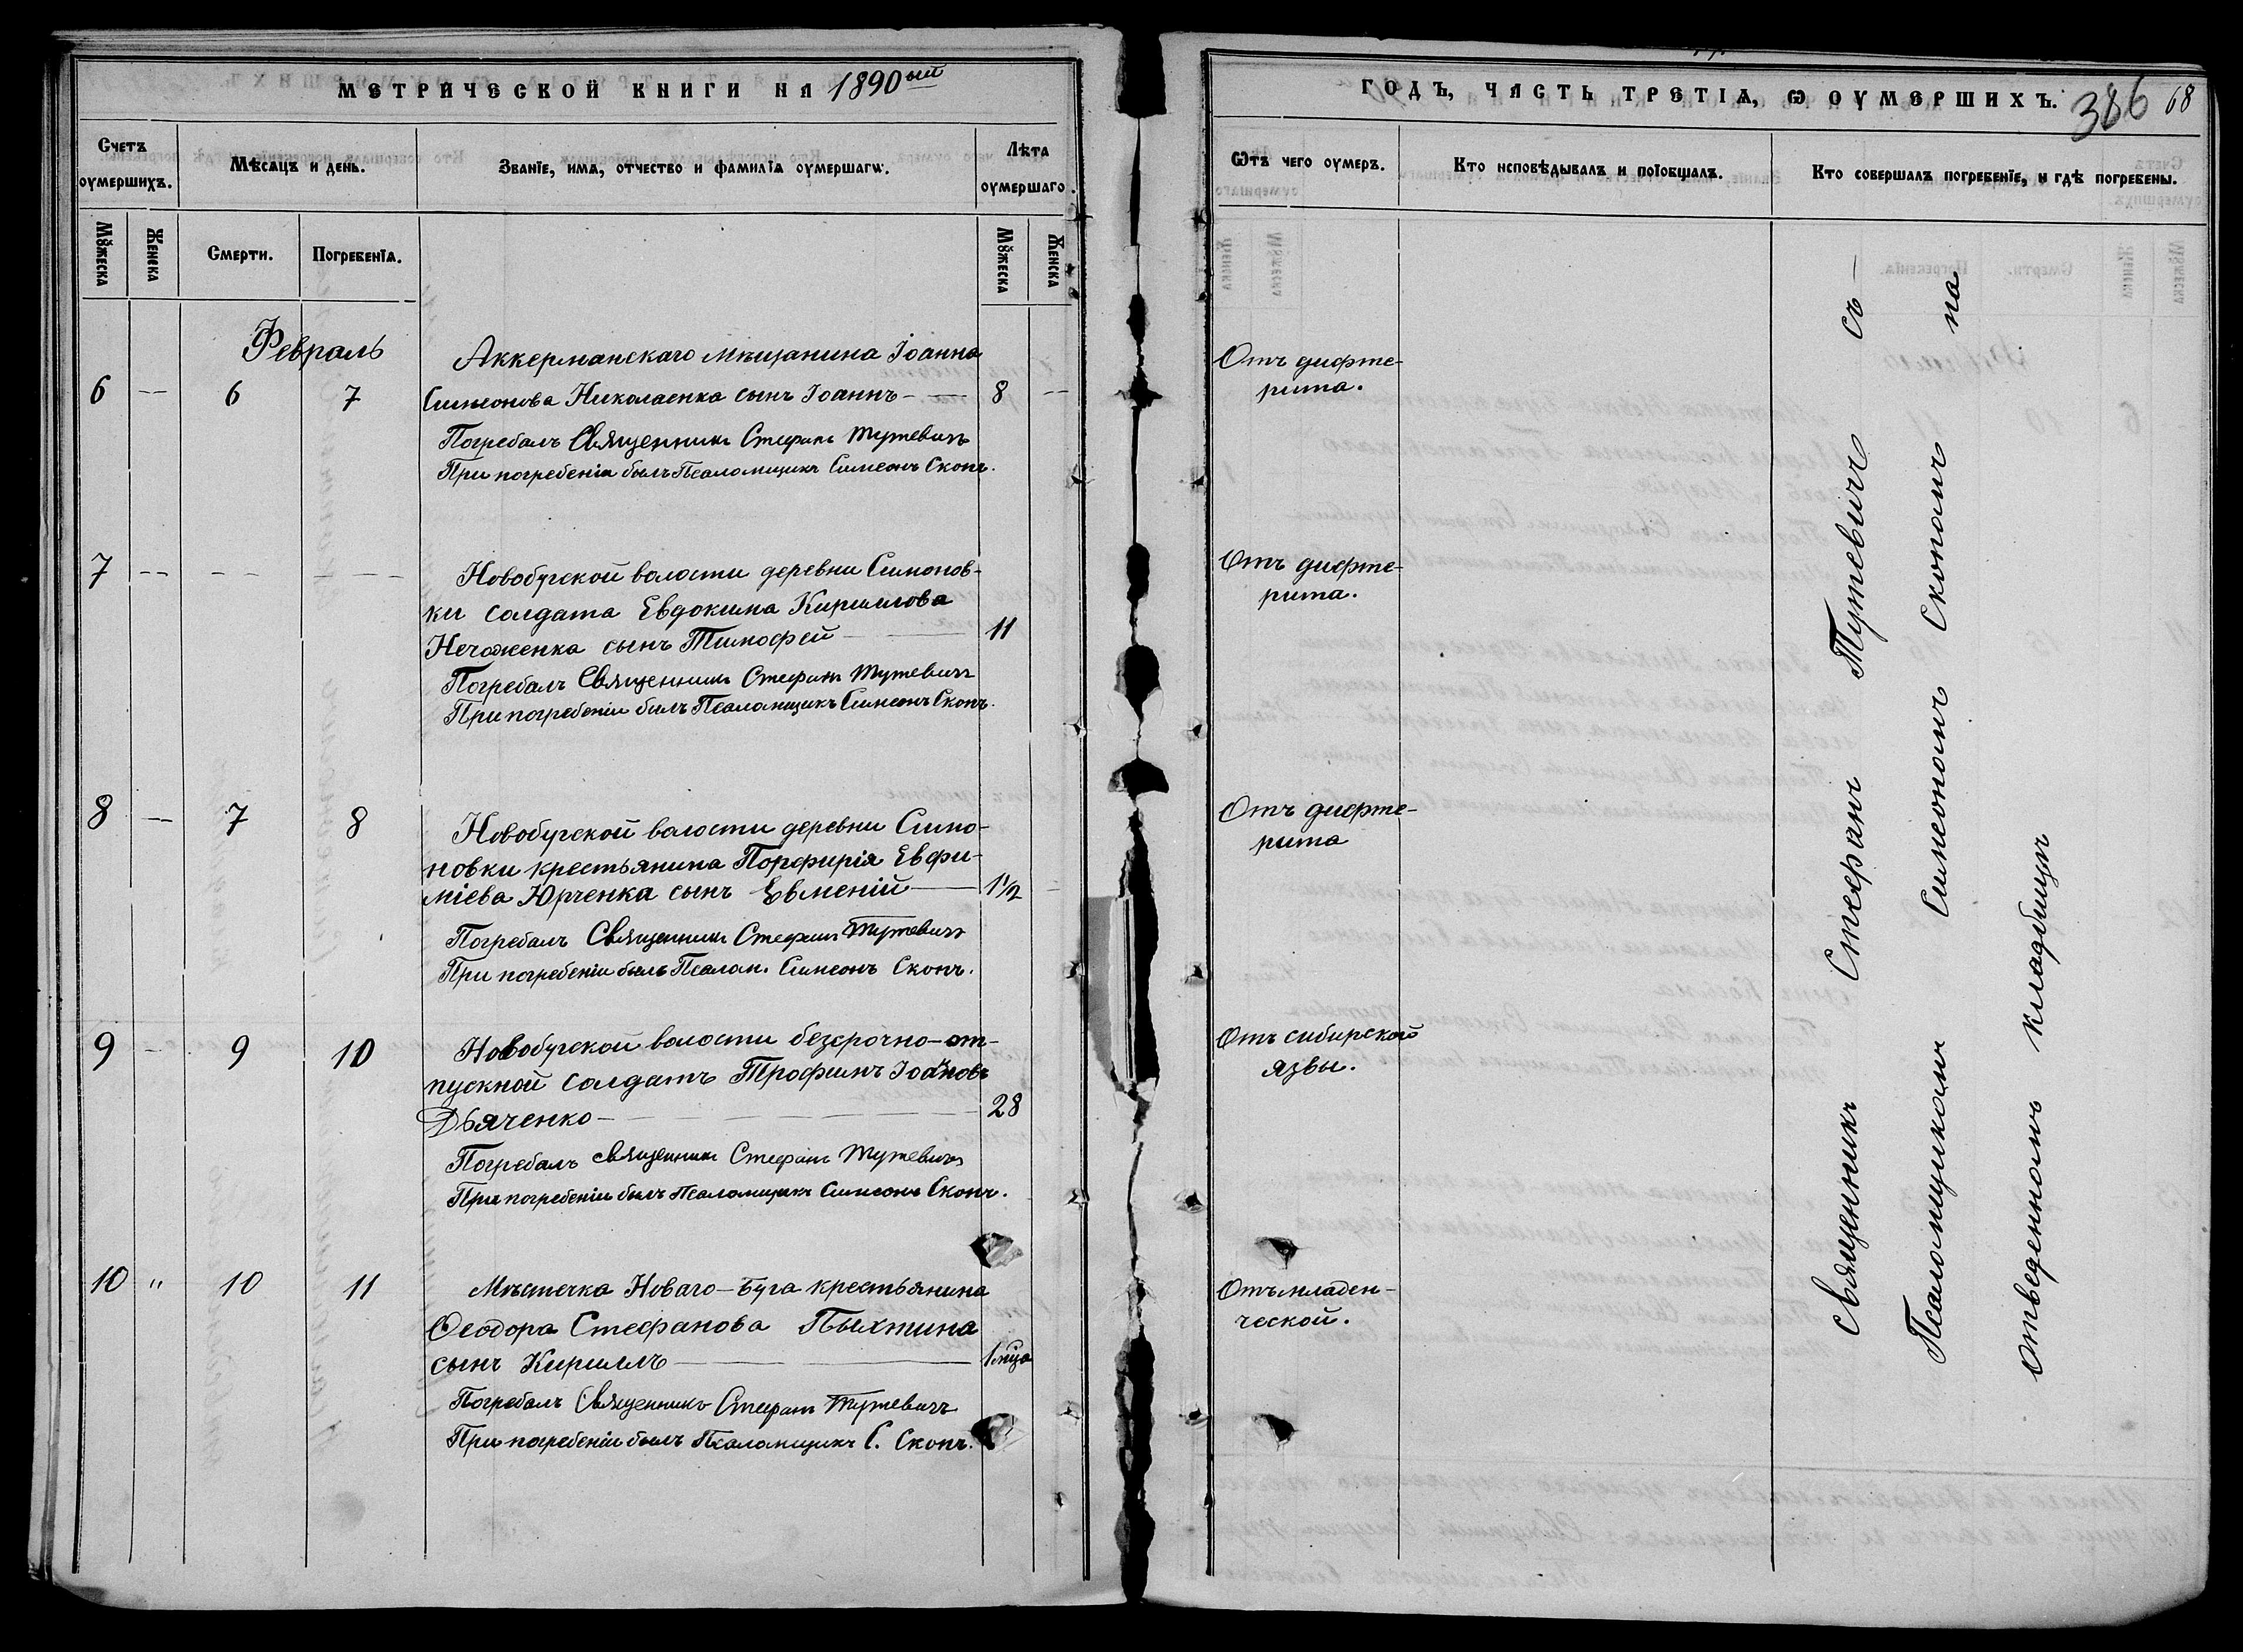 МЕТРИЧЕСКОЙ КНИГИ НА 1890ый
Счетъ оумершихъ.
Мѣсяцъ и день.
Званїе, имя, отчество и фамилїя оумершагѡ.
Лѣта оумершаго.
Мꙋжеска
Женска
Смерти.
Погребенїя.
Мꙋжеска
Женска
Февраль
Аккерманскаго мѣщанина Іоанна
6 — 6 7 Симеонова Николаенка сынъ Іоаннъ — — 8 —
Погребалъ Священникъ Стефанъ Тутевичъ
При погребеніи былъ Псаломщикъ Симеонъ Скопъ.
7 — — — Новобугской волости деревни Симонов-
ки солдата Евдокима Кириллова
Нечоженка сынъ Тимофей — — 11
Погребалъ Священникъ Стефанъ Тутевичъ
При погребеніи былъ Псаломщикъ Симеонъ Скопъ.
8 — 7 8 Новобугской волости деревни Симо-
новки крестьянина Порфирія Евфи-
міева Юрченка сынъ Евменій — 1 1/2 —
Погребалъ Священникъ Стефанъ Тутевичъ
При погребеніи былъ Псалом. Симеонъ Скопъ.
9 — 9 10 Новобугской волости безсрочно-от-
пускной солдатъ Трофимъ Іоанновъ
Дьяченко — 28
Погребалъ священникъ Стефанъ Тутевичъ
При погребеніи былъ Псаломщикъ Симеонъ Скопъ.
10 " 10 11 Мѣстечка Новаго-Буга крестьянина
Ѳеодора Стефанова Пыхтина
сынъ Кириллъ — 1 мца
Погребалъ Священникъ Стефанъ Тутевичъ
При погребеніи былъ Псаломщикъ С. Скопъ.
ГОДЪ, ЧАСТЬ ТРЕТІѦ, Ѡ ОУМЕРШИХЪ.
386 68
Ѿтъ чего оумеръ.
Кто исповѣдывалъ и поїобщалъ.
Кто совершалъ погребенїе, и гдѣ погребены.
Отъ дифте-
рита.
Отъ дифте-
рита.
Отъ дифте-
рита
Отъ сибирской
язвы.
Отъ младен-
ческой.
Священникъ Стефанъ Тутевичъ съ —
Псаломщикомъ Симеономъ Скопомъ на
отведенномъ кладбищѣ